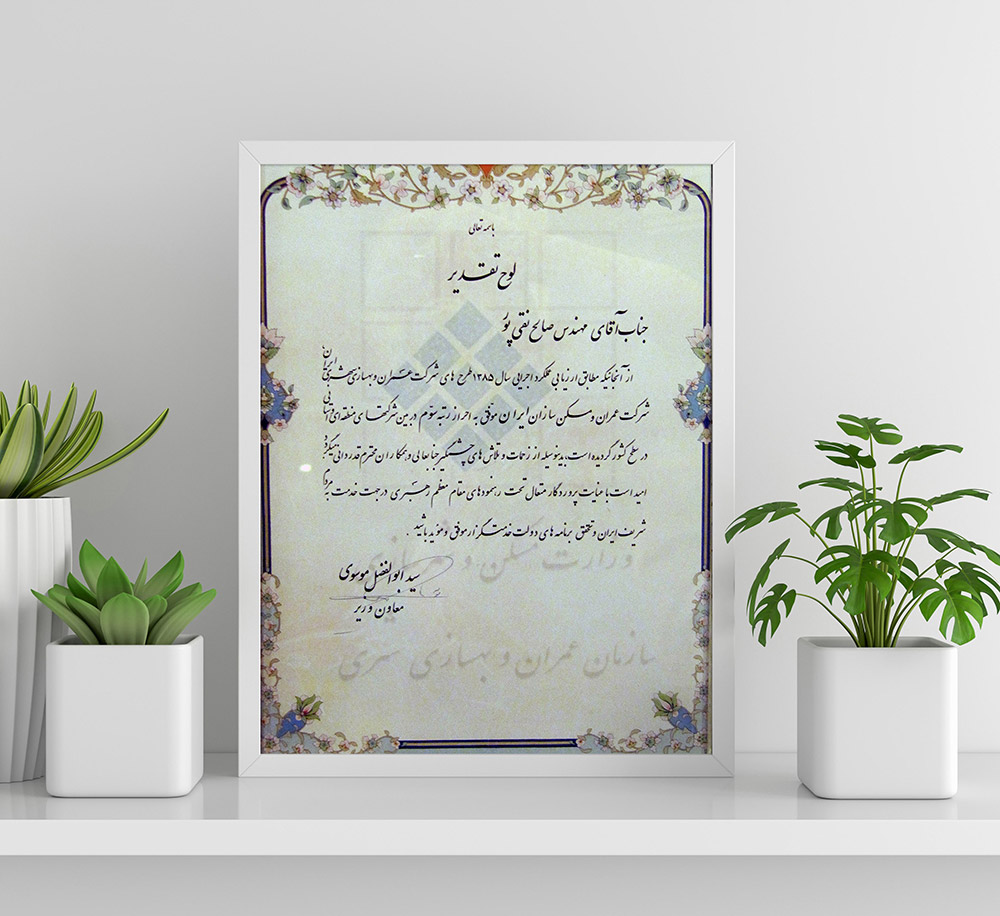 باسمه تعالی
لوح تقدیر
جناب آقای مهندس صالح نقی پور
از آنجائیکه مطابق ارزیابی عملکرد اجرایی سال ۱۳۸۵ طرح های شرکت عمران و بهسازی شهری ایران،
شرکت عمران و مسکن سازان ایران موفق به احراز رتبه سوم در بین شرکتهای منطقه ای و استانی
در سطح کشور گردیده است، بدینوسیله از زحمات و تلاش های چشمگیر جنابعالی و همکاران محترم قدردانی میگردد
امید است با عنایت پروردگار متعال تحت رهنمودهای مقام معظم رهبری در جهت خدمت به مردم
شریف ایران و تحقق برنامه های دولت خدمتگزار موفق و مؤید باشید.
وزارت مسکن و شهرسازی
سید ابوالفضل موسوی
معاون وزیر
سازمان عمران و بهسازی شهری